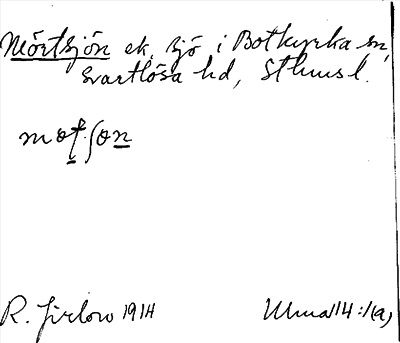 Mörtsjön ek, sjö i Botkyrka sn,
Svartlösa hd, Sthms l.
R. Jirlow 1914 Ulma 114:1(a)